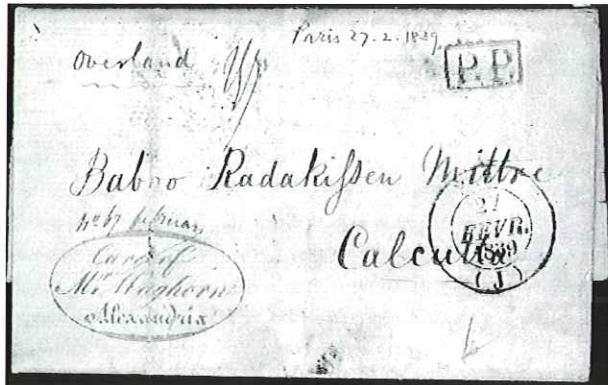 Paris 27.2.1839
overland
P.P.
Baboo Radakissen Mittre
Calcutta
27
FEVR.
1839
(J)
Care of
Mr. Waghorn
Alexandria